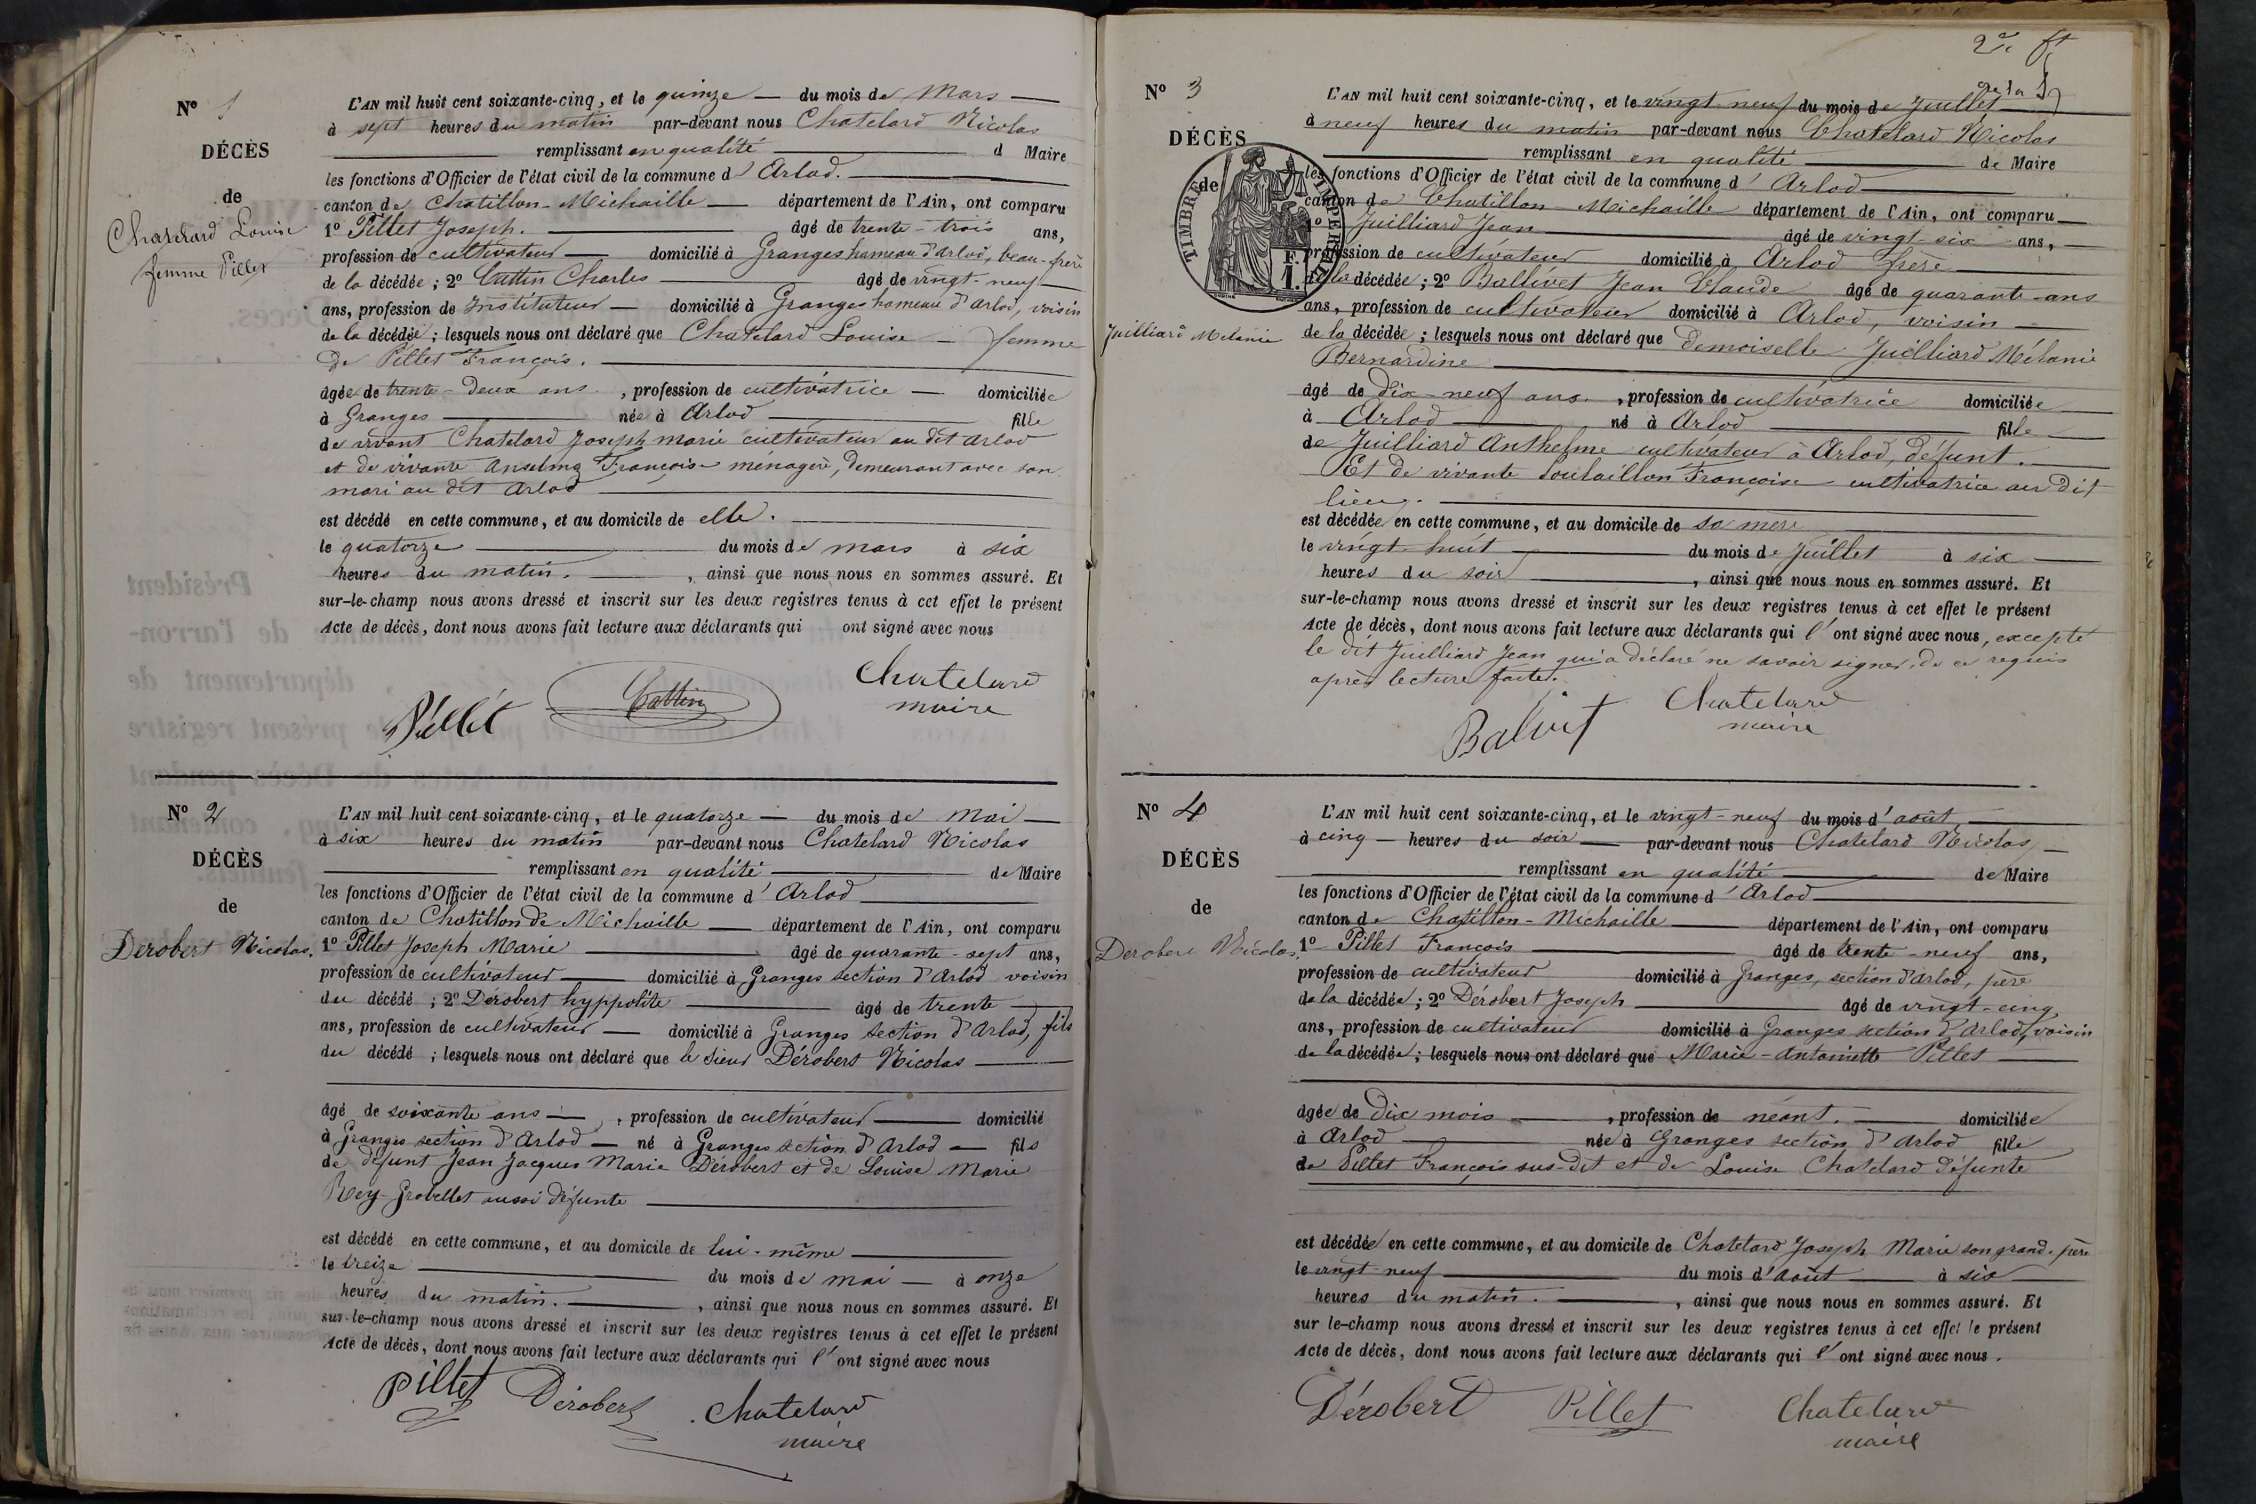 N° 1
DÉCÈS
de
Chatelard Louise
femme Pillet
L'AN mil huit cent soixante-cinq, et le quinze du mois de Mars
à sept heures du matin par-devant nous Chatelard Nicolas
remplissant en qualité d Maire
les fonctions d'Officier de l'état civil de la commune d' Arlod.
canton de Chatillon-Michaille département de l'Ain, ont comparu
1° Pillet Joseph. âgé de trente-trois ans,
profession de cultivateur domicilié à Granges hameau d'Arlod, beau-frère
de la décédée ; 2° Cattin Charles âgé de vingt-neuf
ans, profession de Instituteur domicilié à Granges hameau d'Arlod, voisin
de la décédée ; lesquels nous ont déclaré que Chatelard Louise femme
de Pillet François.
âgée de trente-deux ans, profession de cultivatrice domiciliée
à Granges née à Arlod fille
de vivant Chatelard Joseph marie cultivateur au dit Arlod
et de vivante Anselme Françoise ménagère, demeurant avec son
mari au dit Arlod
est décédé en cette commune, et au domicile de elle.
le quatorze du mois de mars à six
heures du matin. , ainsi que nous nous en sommes assuré. Et
sur-le-champ nous avons dressé et inscrit sur les deux registres tenus à cet effet le présent
Acte de décès, dont nous avons fait lecture aux déclarants qui ont signé avec nous
Pillet Cattin Chatelard
maire
N° 2
DÉCÈS
de
Derobert Nicolas.
L'AN mil huit cent soixante-cinq, et le quatorze du mois de Mai
à six heures du matin par-devant nous Chatelard Nicolas
remplissant en qualité de Maire
les fonctions d'Officier de l'état civil de la commune d' Arlod
canton de Chatillon de Michaille département de l'Ain, ont comparu
1° Pillet Joseph Marie âgé de quarante-sept ans,
profession de cultivateur domicilié à Granges section d'Arlod voisin
du décédé ; 2° Dérobert hyppolite âgé de trente
ans, profession de cultivateur domicilié à Granges section d'Arlod, fils
du décédé ; lesquels nous ont déclaré que le sieur Dérobert Nicolas
âgé de soixante ans, profession de cultivateur domicilié
à Granges section d'Arlod né à Granges section d'Arlod fils
de défunt Jean Jacques Marie Dérobert et de Louise Marie
Rey-Grobellet aussi défunte
est décédé en cette commune, et au domicile de lui-même
le treize du mois de mai à onze
heures du matin. , ainsi que nous nous en sommes assuré. Et
sur-le-champ nous avons dressé et inscrit sur les deux registres tenus à cet effet le présent
Acte de décès, dont nous avons fait lecture aux déclarants qui l'ont signé avec nous
Pillet Dérobert Chatelard
maire
N° 3
DÉCÈS
de
TIMBRE IMPERIAL
1 F.
Juilliard Melanie
L'AN mil huit cent soixante-cinq, et le vingt-neuf du mois de Juillet
à neuf heures du matin par-devant nous Chatelard Nicolas
remplissant en qualité de Maire
les fonctions d'Officier de l'état civil de la commune d' Arlod
canton de Chatillon-Michaille département de l'Ain, ont comparu
1° Juilliard Jean âgé de vingt-six ans,
profession de cultivateur domicilié à Arlod frère
de la décédée ; 2° Ballivet Jean Claude âgé de quarante ans
ans, profession de cultivateur domicilié à Arlod, voisin
de la décédée ; lesquels nous ont déclaré que Demoiselle Juilliard Mélanie
Bernardine
âgé de dix-neuf ans. , profession de cultivatrice domiciliée
à Arlod né à Arlod fille
de Juilliard Anthelme cultivateur à Arlod, défunt.
Et de vivante Soutaillon Françoise cultivatrice au dit
lieu.
est décédée en cette commune, et au domicile de sa mère
le vingt-huit du mois de Juillet à six
heures du soir , ainsi que nous nous en sommes assuré. Et
sur-le-champ nous avons dressé et inscrit sur les deux registres tenus à cet effet le présent
Acte de décès, dont nous avons fait lecture aux déclarants qui l'ont signé avec nous, excepté
le dit Juilliard Jean qui a déclaré ne savoir signer, de ce requis
après lecture faite.
Balivet Chatelard
maire
N° 4
DÉCÈS
de
Derobert Nicolas.
L'AN mil huit cent soixante-cinq, et le vingt-neuf du mois d'août
à cinq heures du soir par-devant nous Chatelard Nicolas
remplissant en qualité de Maire
les fonctions d'Officier de l'état civil de la commune d' Arlod
canton de Chatillon-Michaille département de l'Ain, ont comparu
1° Pillet François âgé de trente-neuf ans,
profession de cultivateur domicilié à Granges, section d'Arlod, père
de la décédée ; 2° Dérobert Joseph âgé de vingt-cinq
ans, profession de cultivateur domicilié à Granges section d'Arlod, voisin
de la décédée ; lesquels nous ont déclaré que Marie-Antoinette Pillet
âgée de dix mois , profession de néant. domiciliée
à Arlod née à Granges section d'Arlod fille
de Pillet François sus-dit et de Louise Chatelard défunte
est décédée en cette commune, et au domicile de Chatelard Joseph Marie son grand-père
le vingt-neuf du mois d'Août à six
heures du matin. , ainsi que nous nous en sommes assuré. Et
sur le-champ nous avons dressé et inscrit sur les deux registres tenus à cet effet le présent
Acte de décès, dont nous avons fait lecture aux déclarants qui l'ont signé avec nous.
Dérobert Pillet Chatelard
maire